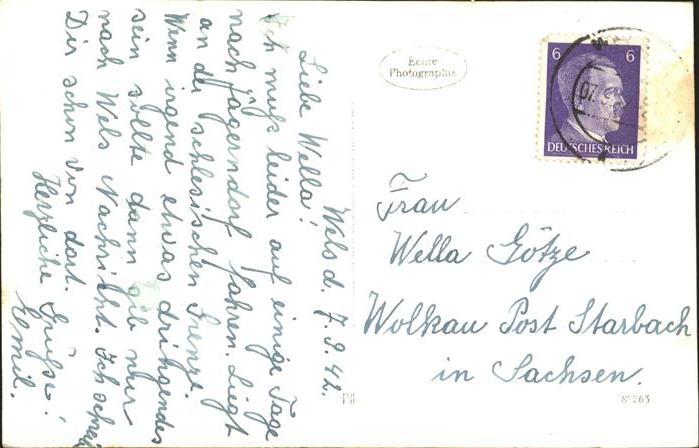 Wels d. 7.9.42.
Liebe Wella!
Ich muß leider auf einige Tage
nach Jägerndorf fahren. Liegt
an der schlesischen Grenze.
Wenn irgend etwas dringendes
sein sollte dann gib nur
nach Wels Nachricht. Ich schreibe
Dir schon von dort.
Herzliche Grüße!
Emil.
Echte
Photographie
6 6
DEUTSCHES REICH
07.
Frau
Wella Götze
Wolkau Post Starbach
in Sachsen.